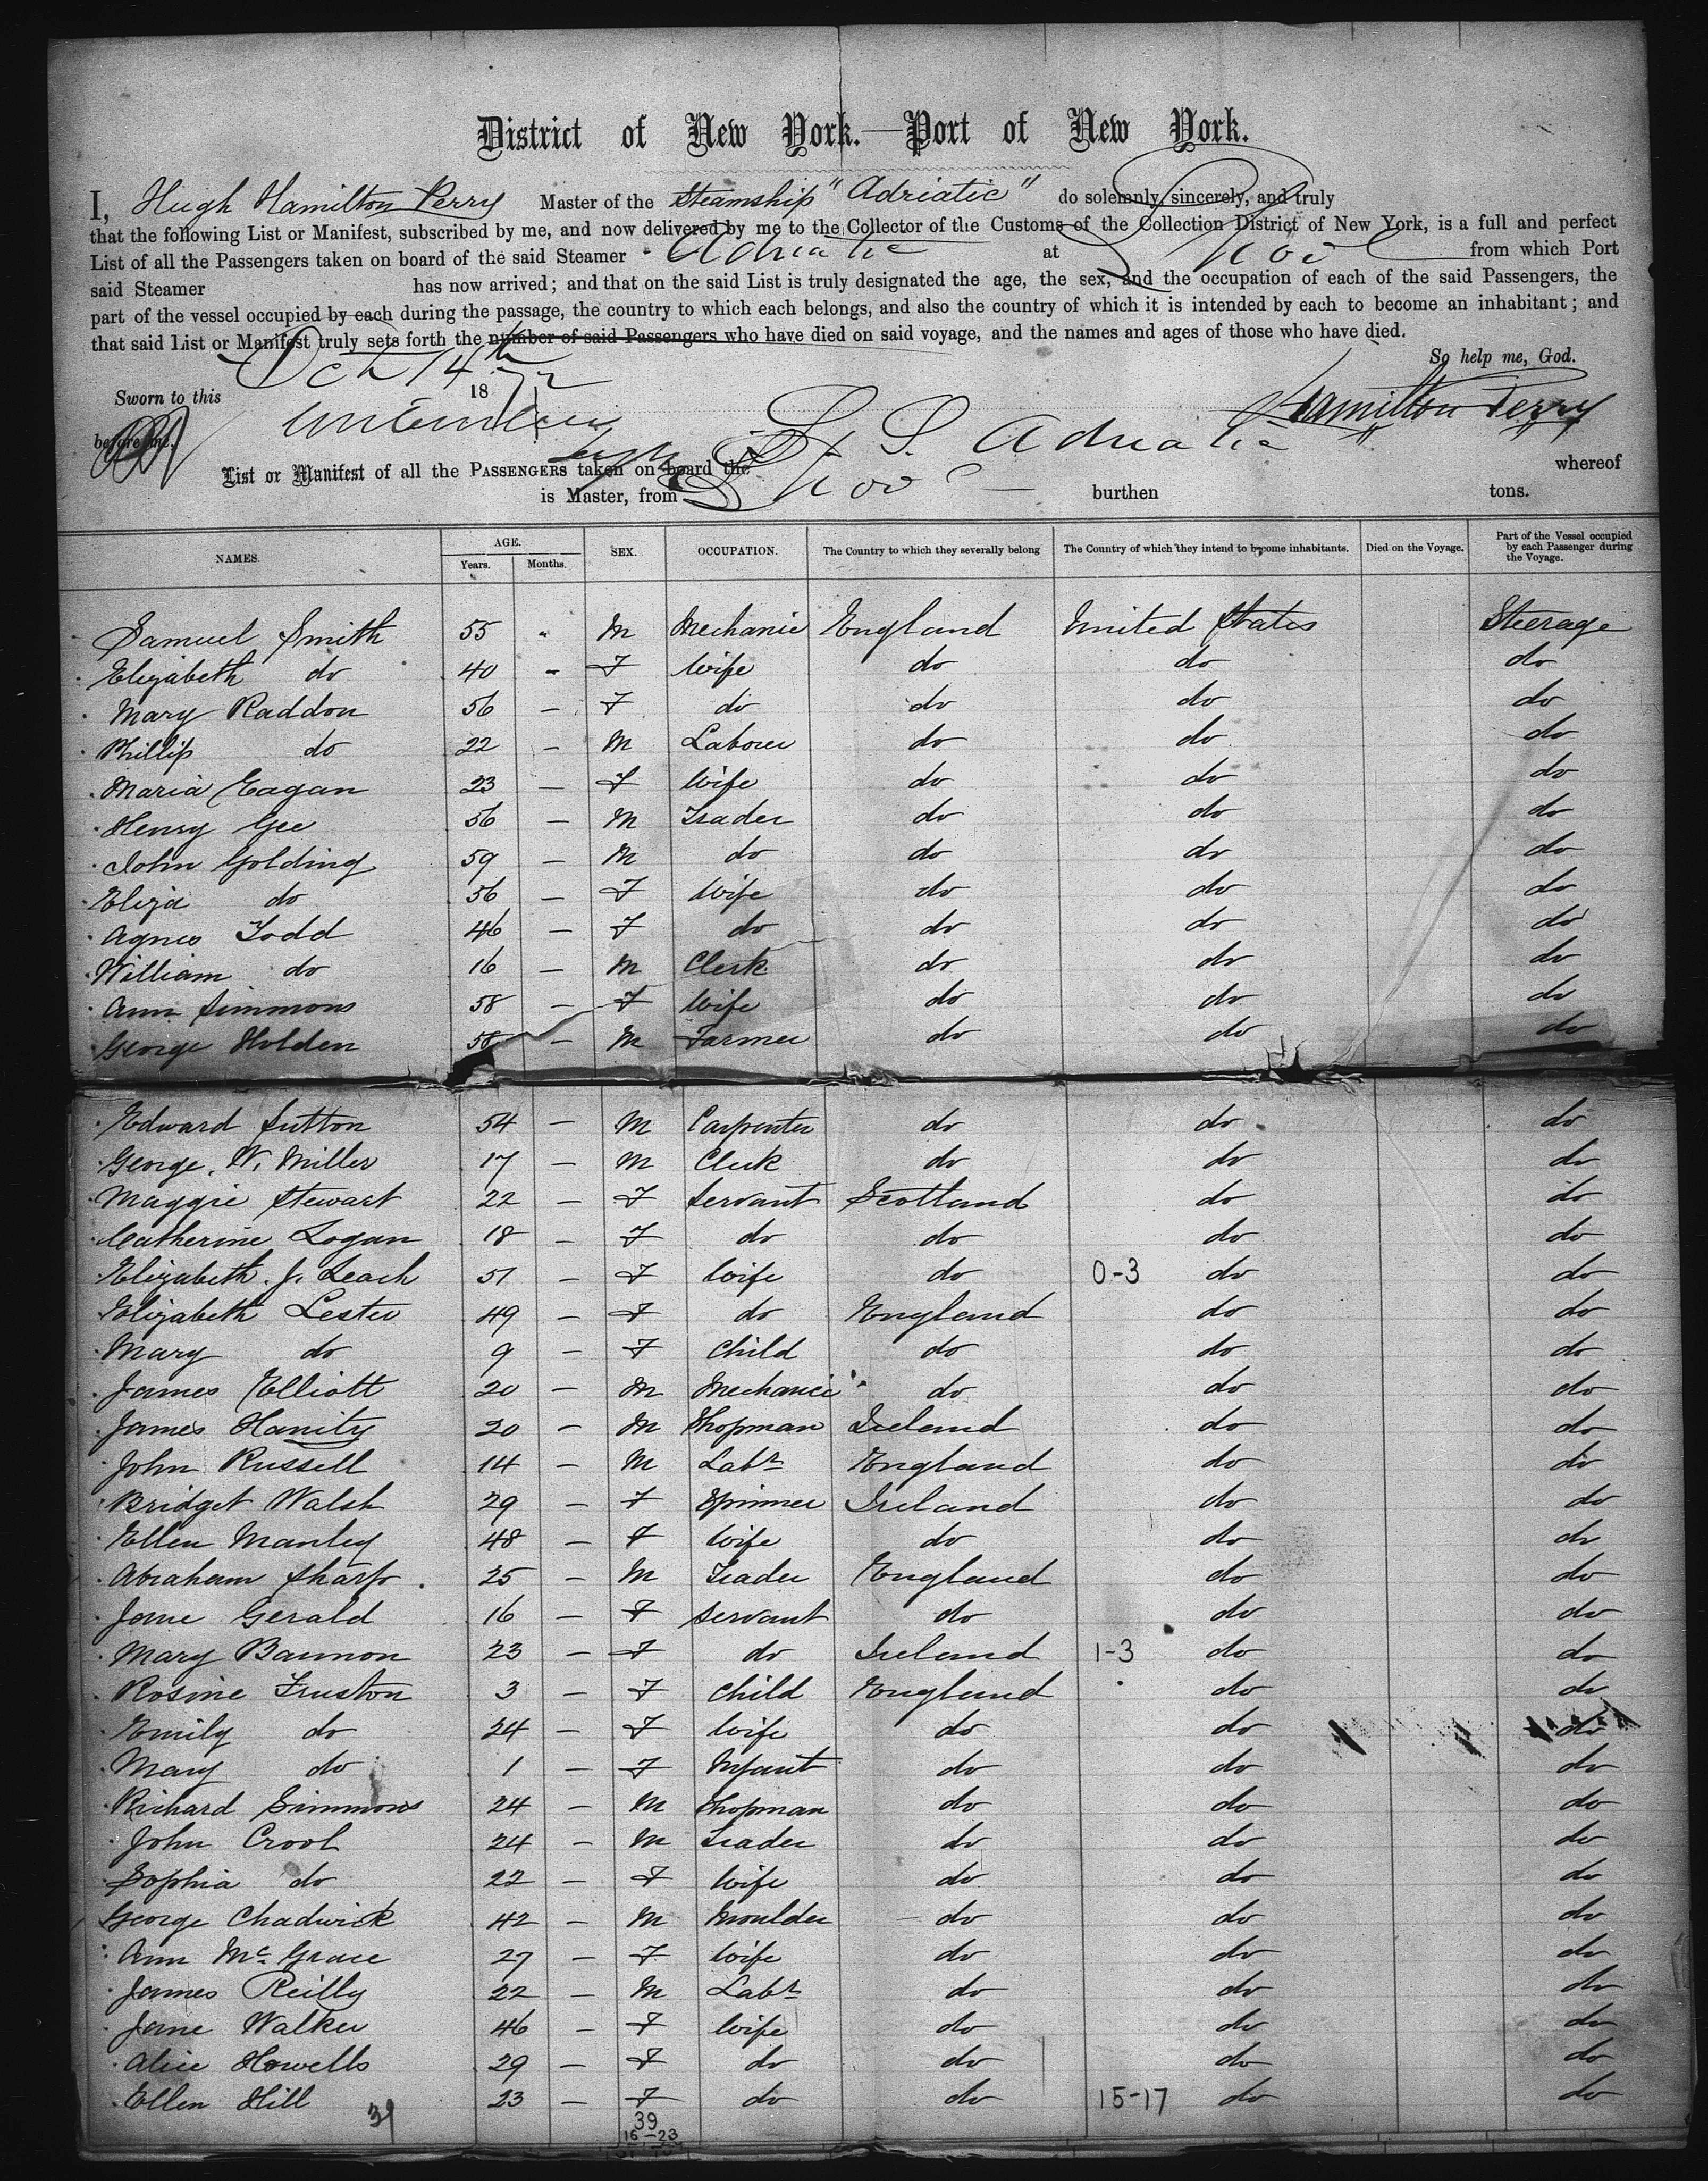 District of New York.—Port of New York.
I, Hugh Hamilton Perry Master of the Steamship "Adriatic" do solemnly, sincerely, and truly
that the following List or Manifest, subscribed by me, and now delivered by me to the Collector of the Customs of the Collection District of New York, is a full and perfect
List of all the Passengers taken on board of the said Steamer Adriatic at from which Port
said Steamer has now arrived; and that on the said List is truly designated the age, the sex, and the occupation of each of the said Passengers, the
part of the vessel occupied by each during the passage, the country to which each belongs, and also the country of which it is intended by each to become an inhabitant; and
that said List or Manifest truly sets forth the number of said Passengers who have died on said voyage, and the names and ages of those who have died.
So help me, God.
Sworn to this Oct 14th 1872
Hamilton Perry
before me.
List or Manifest of all the PASSENGERS taken on board the S. S. Adriatic whereof
is Master, from burthen tons.
NAMES. AGE. Years. Months. SEX. OCCUPATION. The Country to which they severally belong The Country of which they intend to become inhabitants. Died on the Voyage. Part of the Vessel occupied by each Passenger during the Voyage.
Samuel Smith 55 " M Mechanic England United States Steerage
Elizabeth do 40 " F Wife do do do
Mary Raddon 56 — F do do do do
Phillip do 22 — M Laborer do do do
Maria Eagan 23 — F Wife do do do
Henry Gee 56 — M Trader do do do
John Golding 59 — M do do do do
Eliza do 56 — F Wife do do do
Agnes Todd 46 — F do do do do
William do 16 — M Clerk do do do
Ann Simmons 58 — F Wife do do do
George Holden 58 — M Farmer do do do
Edward Sutton 54 — M Carpenter do do do
George. W. Miller 17 — M Clerk do do do
Maggie Stewart 22 — F Servant Scotland do do
Catherine Logan 18 — F do do do do
Elizabeth. J. Leach 51 — F Wife do 0-3 do do
Elizabeth Lester 49 — F do England do do
Mary do 9 — F Child do do do
James Elliott 20 — M Mechanic do do do
James Hanity 20 — M Shopman Ireland do do
John Russell 14 — M Labr England do do
Bridget Walsh 29 — F Spinner Ireland do do
Ellen Manley 48 — F Wife do do do
Abraham Sharp 25 — M Trader England do do
Jane Gerald 16 — F Servant do do do
Mary Bannon 23 — F do Ireland 1-3 do do
Rosine Truston 3 — F Child England do do
Emily do 24 — F Wife do do do
Mary do 1 — F Infant do do do
Richard Simmons 24 — M Shopman do do do
John Crool 24 — M Trader do do do
Sophia do 22 — F Wife do do do
George Chadwick 42 — M Moulder do do do
Ann McGrace 27 — F Wife do do do
James Reilly 22 — M Labr do do do
Jane Walker 46 — F Wife do do do
Alice Howells 29 — F do do do do
Ellen Hill 23 — F do do 15-17 do do
39 39
16-23